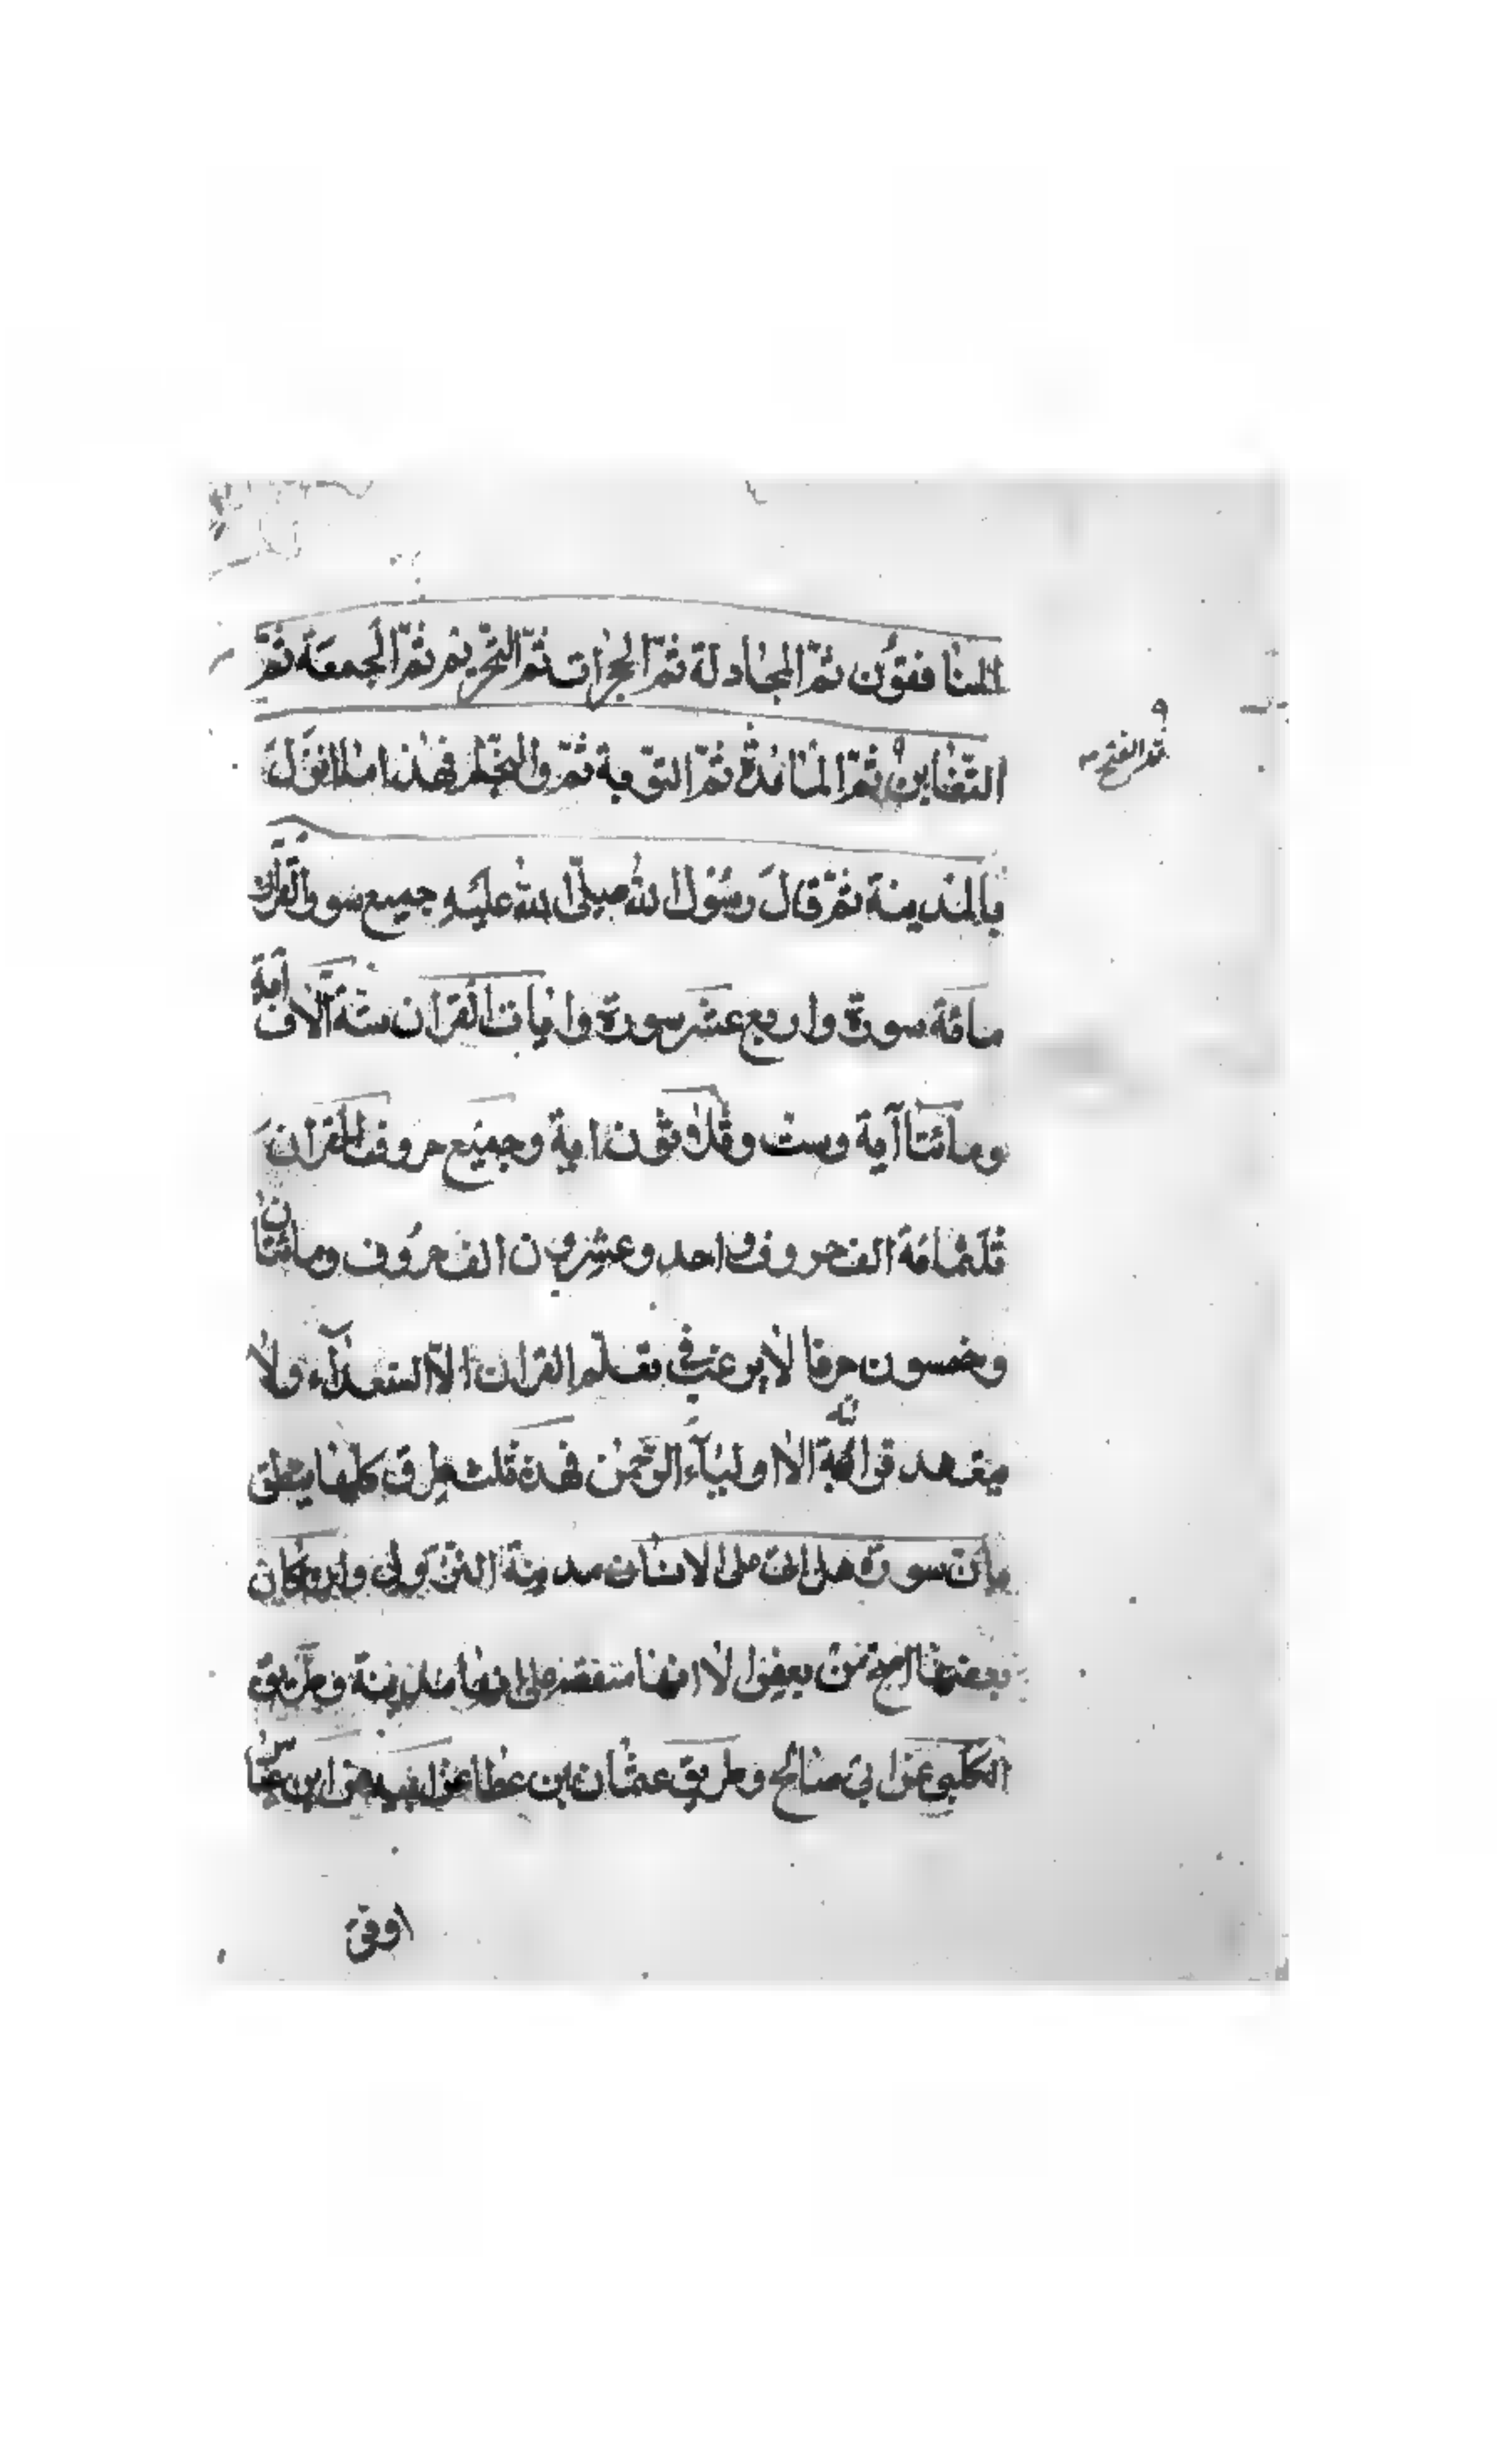 المنافقون ثمّ المجادلة ثمّ الحجرات ثمّ التحريم ثمّ الجمعة ثمّ
التغابن ثمّ المائدة ثمّ التوبة ثمّ والنجم فهذا ما انزل
ثم الفتح
بالمدينة ثمّ قال رسول الله صلّى الله عليه جميع سور القرآن
مائة سورة واربع عشر سورة وايات القرآن ستّة آلاف آية
ومائتا آية وست وثلاثون اية وجميع حروف القرآن
ثلثمائة الف حروف واحد وعشرون الف حروف ومائتان
وخمسون حرفا لا يرغب في تعلّم القرآن الاّ السعدآء ولا
يتعهد قرائته الا اوليآء الرّحمن فهذه ثلث طرق كلها ينطق
بان سورة هل اتى على الانسان مدينة النزول وان كان
بعضها من بعض الا انها متفقة على انها مدينة وطريق
الكلبي عن ابي صالح وطريق عثمان بن عطا عن ابيه عن ابن عبّاس
اوفى